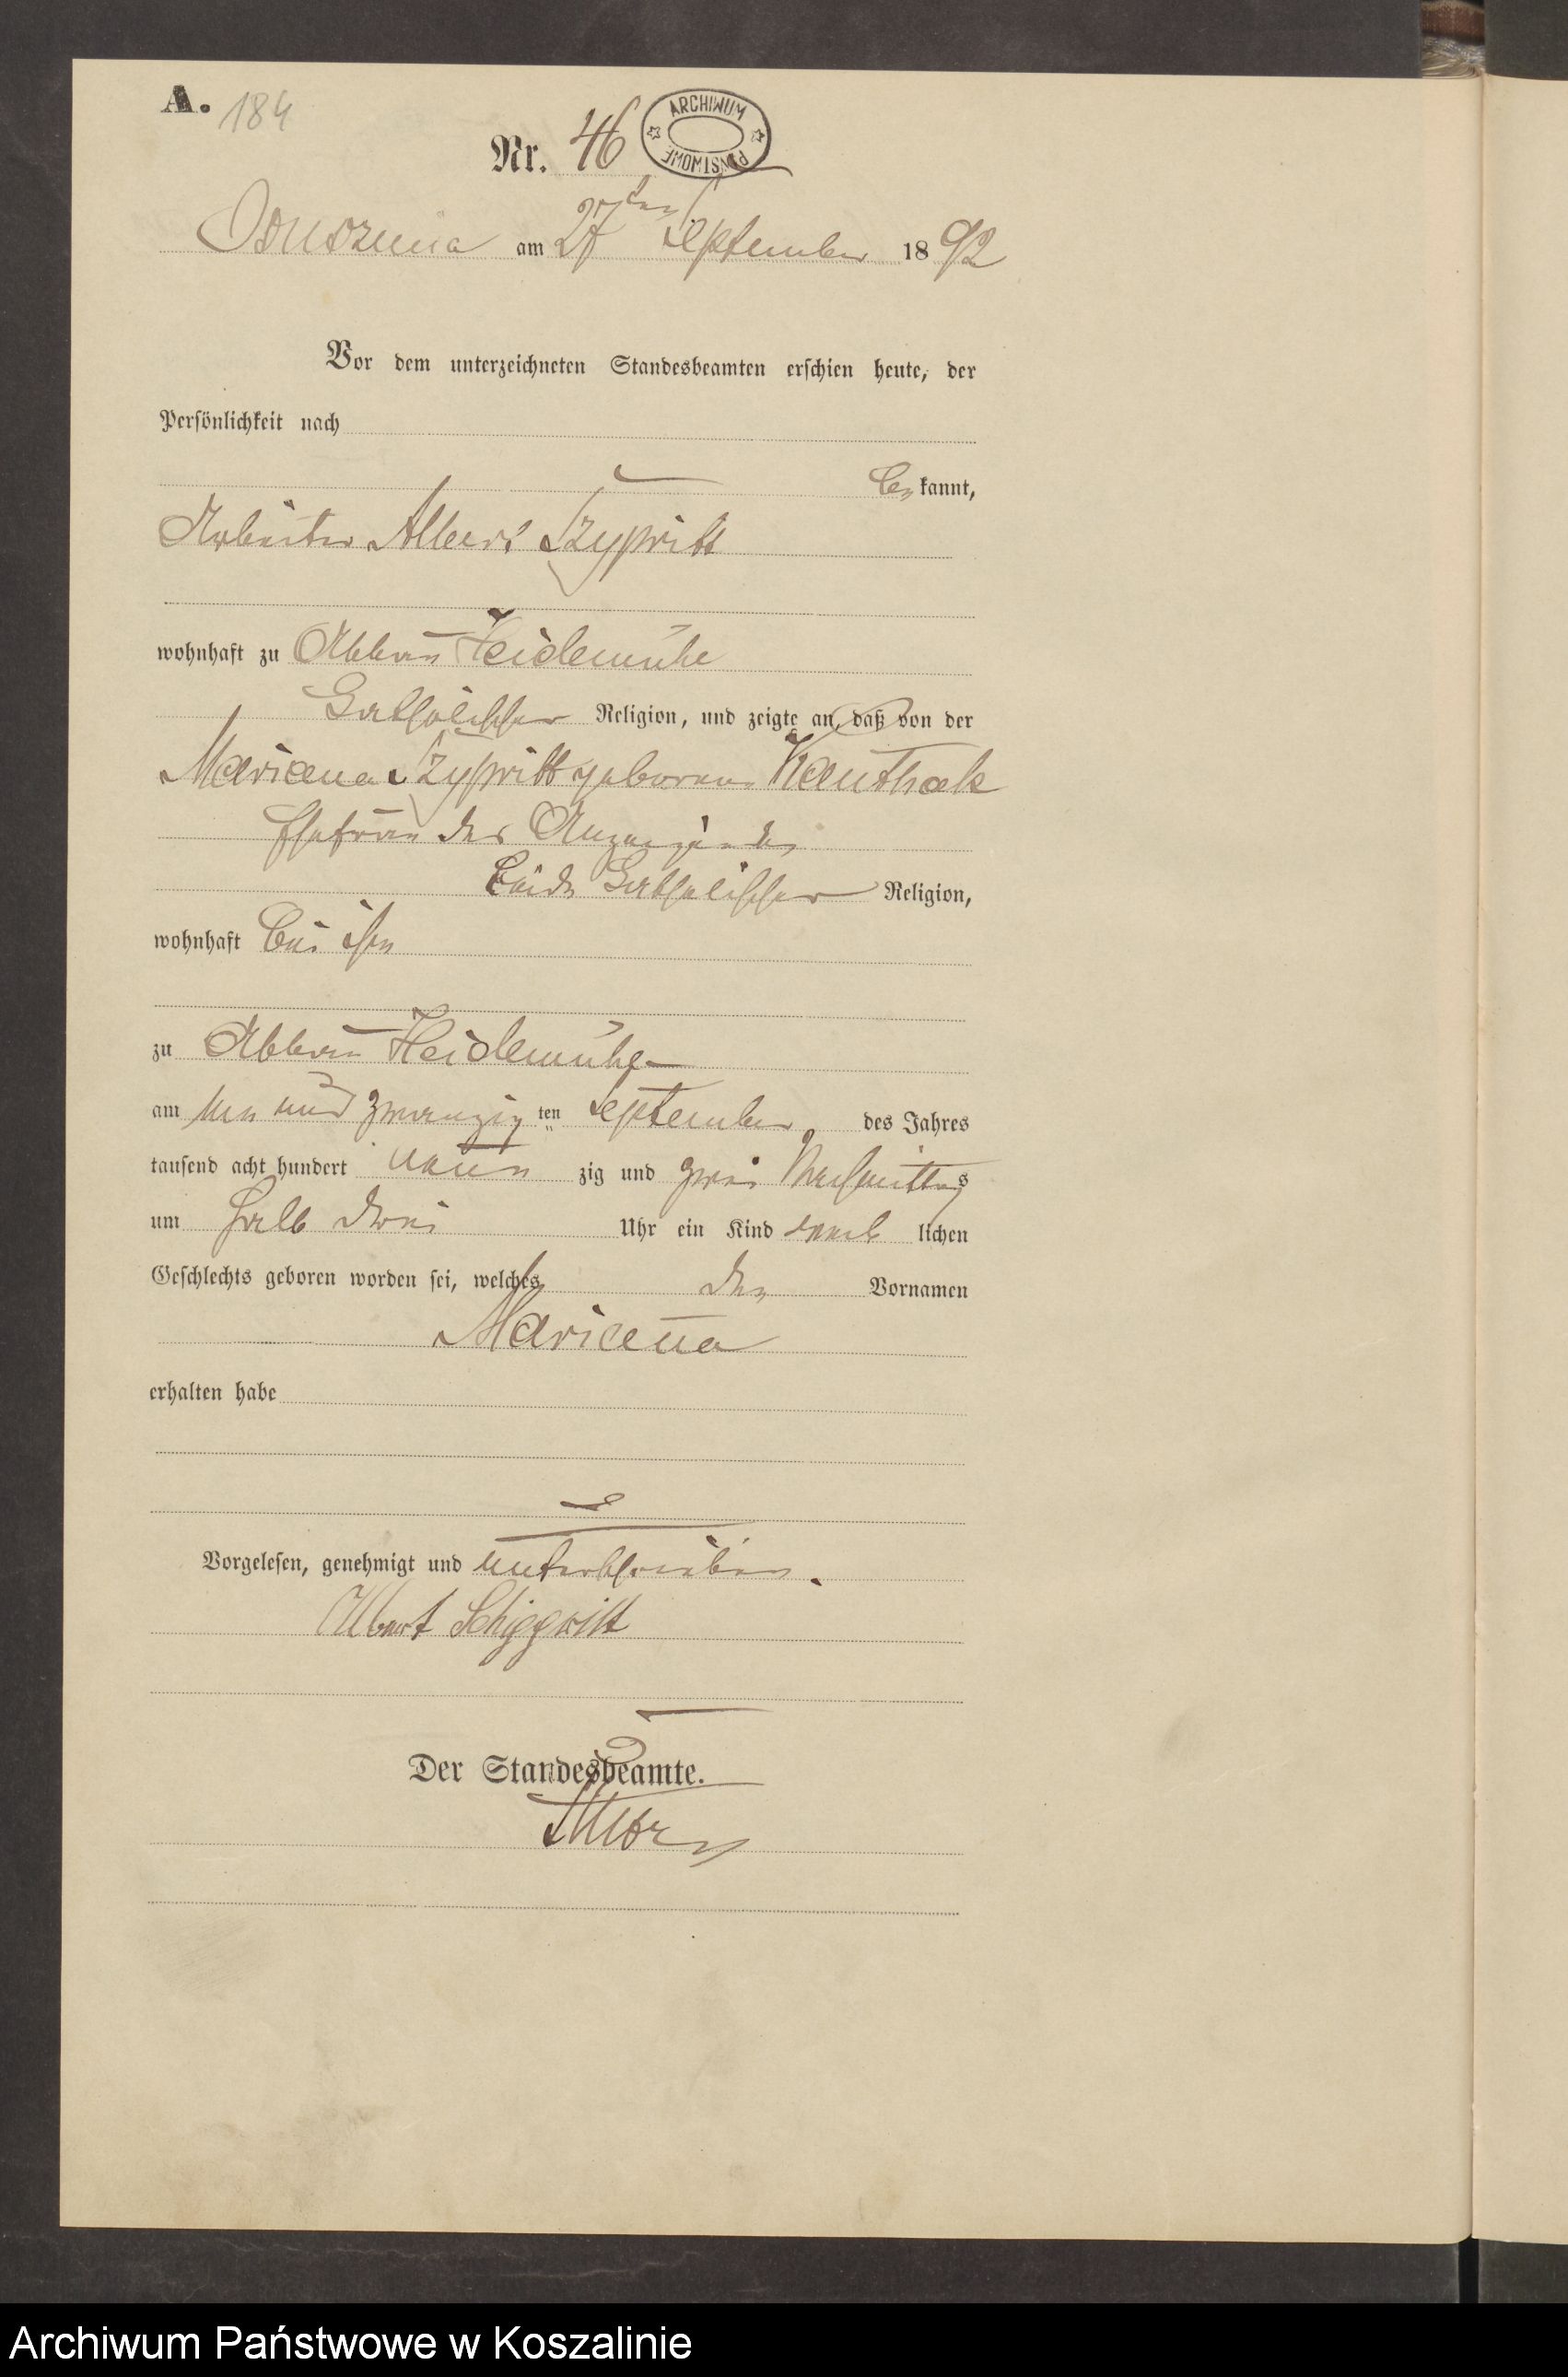 A. 184
Nr. 46
ARCHIWUM PAŃSTWOWE
Ossuszniça am 27ten September 1892
Vor dem unterzeichneten Standesbeamten erschien heute, der
Persönlichkeit nach
be kannt,
Arbeiter Albert Szypritt
wohnhaft zu Abbau Heidemühle
katholischer Religion, und zeigte an, daß von der
Marianna Szypritt geborenen Kauthak
Ehefrau des Anzeigenden
beide katholischer Religion,
wohnhaft bei ihm
zu Abbau Heidemühle
am und zwanzig ten September des Jahres
tausend acht hundert neun zig und zwei Nachmittags
um halb drei Uhr ein Kind weib lichen
Geschlechts geboren worden sei, welches den Vornamen
Marianna
erhalten habe
Vorgelesen, genehmigt und unterschrieben.
Albert Schippritt
Der Standesbeamte.
Archiwum Państwowe w Koszalinie